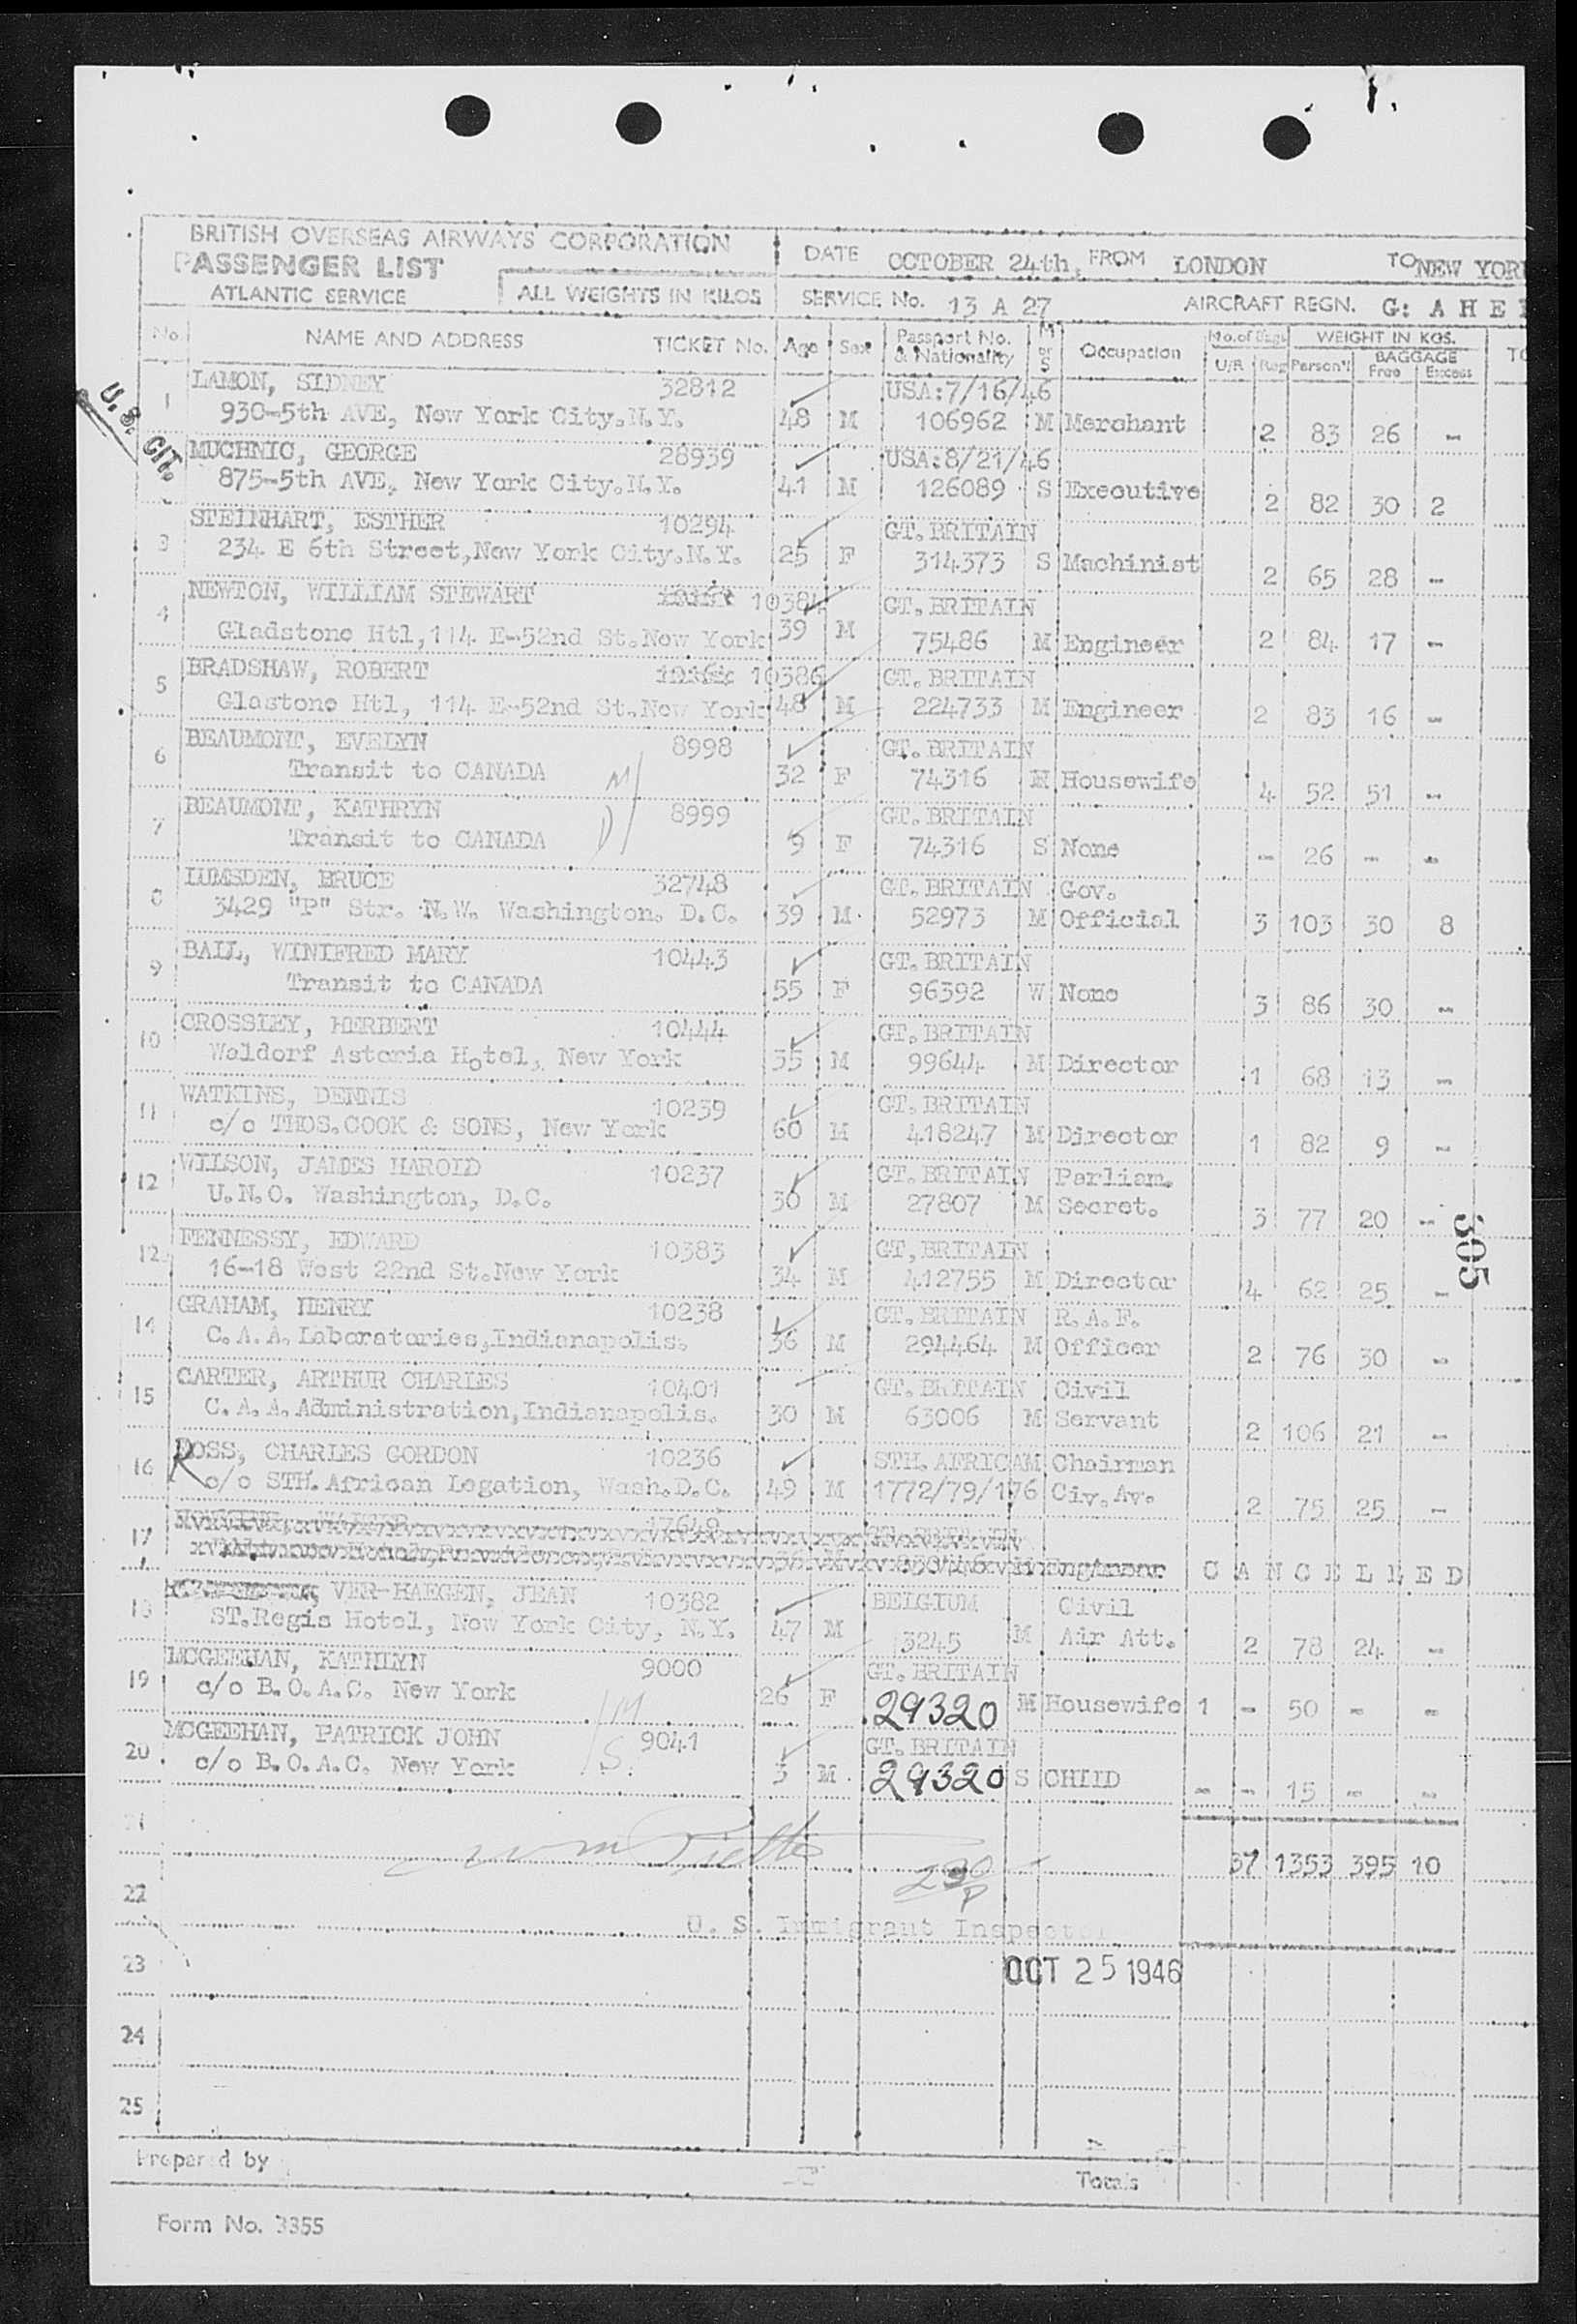 BRITISH OVERSEAS AIRWAYS CORPORATION
PASSENGER LIST
ATLANTIC SERVICE
ALL WEIGHTS IN KILOS
DATE OCTOBER 24th, FROM LONDON TO NEW YOR
SERVICE No. 13 A 27 AIRCRAFT REGN. G: A H E
No. NAME AND ADDRESS TICKET No. Age Sex Passport No. & Nationality M or S Occupation No. of Bags U/R Reg WEIGHT IN KGS. Person'l BAGGAGE Free Excess TO
U.S. CIT.
LAMON, SIDNEY 32812 USA:7/16/46
1 930-5th AVE, New York City.N.Y. 48 M 106962 M Merchant 2 83 26 -
MUCHNIC, GEORGE 28939 USA:8/21/46
875-5th AVE, New York City.N.Y. 41 M 126089 S Executive 2 82 30 2
STEINHART, ESTHER 10294 GT.BRITAIN
3 234 E 6th Street,New York City.N.Y. 25 F 314373 S Machinist 2 65 28 -
NEWTON, WILLIAM STEWART 10384 GT.BRITAIN
4 Gladstone Htl,114 E-52nd St.New York 39 M 75486 M Engineer 2 84 17 -
BRADSHAW, ROBERT 10386 GT.BRITAIN
5 Glastone Htl, 114 E-52nd St.New York 48 M 224733 M Engineer 2 83 16 -
BEAUMONT, EVELYN 8998 GT.BRITAIN
6 Transit to CANADA M 32 F 74316 M Housewife 4 52 51 -
BEAUMONT, KATHRYN 8999 GT.BRITAIN
7 Transit to CANADA D 9 F 74316 S None - 26 - -
LUMSDEN, BRUCE 32748 GT.BRITAIN Gov.
8 3429 "P" Str. N.W. Washington. D.C. 39 M 52973 M Official 3 103 30 8
BALL, WINIFRED MARY 10443 GT.BRITAIN
9 Transit to CANADA 55 F 96392 W None 3 86 30 -
CROSSLEY, HERBERT 10444 GT.BRITAIN
10 Waldorf Astoria Hotel, New York 35 M 99644 M Director 1 68 13 -
WATKINS, DENNIS 10239 GT.BRITAIN
11 c/o THOS.COOK & SONS, New York 60 M 418247 M Director 1 82 9 -
WILSON, JAMES HAROLD 10237 GT.BRITAIN Parliam.
12 U.N.O. Washington, D.C. 30 M 27807 M Secret. 3 77 20 -
FENNESSY, EDWARD 10383 GT,BRITAIN
12 16-18 West 22nd St.New York 34 M 412755 M Director 4 62 25 -
GRAHAM, HENRY 10238 GT.BRITAIN R.A.F.
14 C.A.A.Laboratories,Indianapolis. 36 M 294464 M Officer 2 76 30 -
CARTER, ARTHUR CHARLES 10401 GT.BRITAIN Civil
15 C.A.A.Administration,Indianapolis. 30 M 63006 M Servant 2 106 21 -
ROSS, CHARLES GORDON 10236 STH.AFRICAM Chairman
16 c/o STH.African Legation, Wash.D.C. 49 M 1772/79/176 Civ.Av. 2 75 25 -
17649
17 C A N C E L L E D
VER-HAEGEN, JEAN 10382 BELGIUM Civil
18 ST.Regis Hotel, New York City, N.Y. 47 M 3245 M Air Att. 2 78 24 -
MCGEEHAN, KATHLYN 9000 GT.BRITAIN
19 c/o B.O.A.C. New York M 26 F 29320 M Housewife 1 - 50 - -
MCGEEHAN, PATRICK JOHN 9041 GT.BRITAIN
20 c/o B.O.A.C. New York S. 3 M 29320 S CHILD - - 15 - -
21
37 1353 395 10
22
U. S. Immigrant Inspector
23 OCT 25 1946
24
25
Prepared by
Totals
Form No. 3355
305